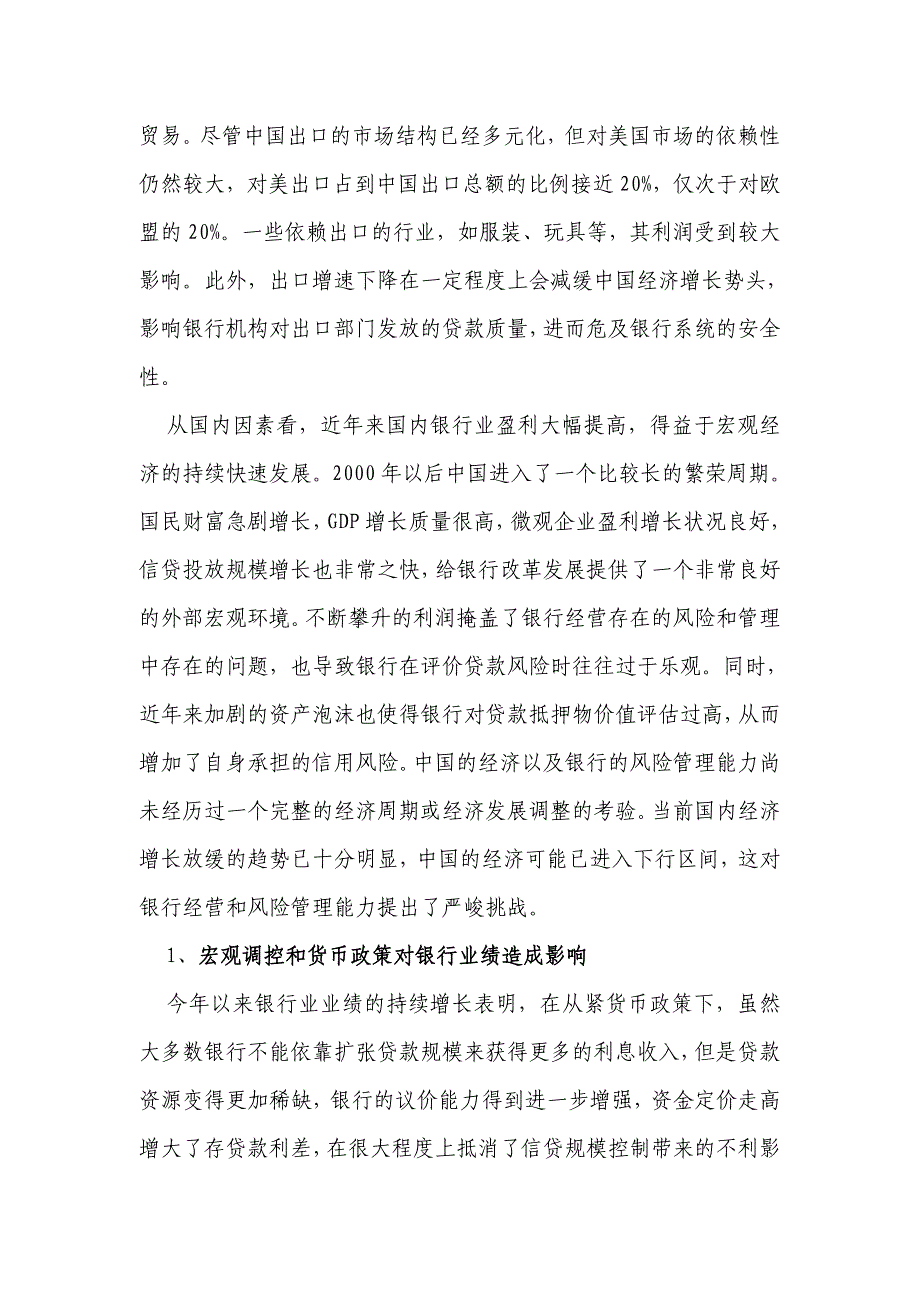 贸易。尽管中国出口的市场结构已经多元化，但对美国市场的依赖性
仍然较大，对美出口占到中国出口总额的比例接近 20%，仅次于对欧
盟的 20%。一些依赖出口的行业，如服装、玩具等，其利润受到较大
影响。此外，出口增速下降在一定程度上会减缓中国经济增长势头，
影响银行机构对出口部门发放的贷款质量，进而危及银行系统的安全
性。
从国内因素看，近年来国内银行业盈利大幅提高，得益于宏观经
济的持续快速发展。2000 年以后中国进入了一个比较长的繁荣周期。
国民财富急剧增长，GDP 增长质量很高，微观企业盈利增长状况良好，
信贷投放规模增长也非常之快，给银行改革发展提供了一个非常良好
的外部宏观环境。不断攀升的利润掩盖了银行经营存在的风险和管理
中存在的问题，也导致银行在评价贷款风险时往往过于乐观。同时，
近年来加剧的资产泡沫也使得银行对贷款抵押物价值评估过高，从而
增加了自身承担的信用风险。中国的经济以及银行的风险管理能力尚
未经历过一个完整的经济周期或经济发展调整的考验。当前国内经济
增长放缓的趋势已十分明显，中国的经济可能已进入下行区间，这对
银行经营和风险管理能力提出了严峻挑战。
1、宏观调控和货币政策对银行业绩造成影响
今年以来银行业业绩的持续增长表明，在从紧货币政策下，虽然
大多数银行不能依靠扩张贷款规模来获得更多的利息收入，但是贷款
资源变得更加稀缺，银行的议价能力得到进一步增强，资金定价走高
增大了存贷款利差，在很大程度上抵消了信贷规模控制带来的不利影